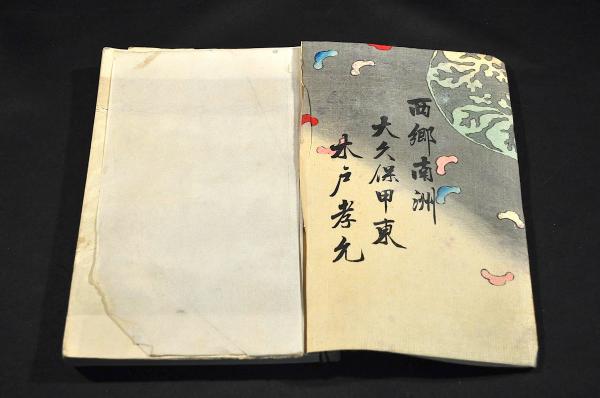 西郷南洲
大久保甲東
木戸孝允